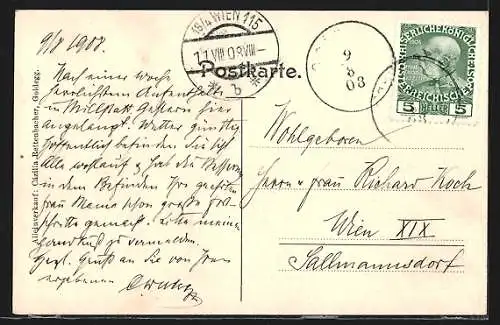 9/8 1908.
Nach einer Woche
herrlichsten Aufenthaltes
in Millstatt gestern hier
angelangt. Wetter günstig
Hoffentlich befinden Sie sich
Alle wohlauf & hat die Besserung
in dem Befinden Ihrer geehrten
Frau Mama schon große Fort-
schritte gemacht. Bitte meinen
Handkuß zu vermelden.
Hzgl. Gruß an Sie von Ihrem
ergebenen
Alleinverkauf: Cäcilia Rettenbacher, Goldegg.
Postkarte.
19/4 WIEN 115
11 VIII 08 VIII
* b *
9
8
08
KAISERLICHE KÖNIGLICHE
ÖSTERREICHISCHE
5 HELLER 5
Wohlgeboren
Herrn & Frau Richard Koch
Wien XIX
Sallmannsdorf